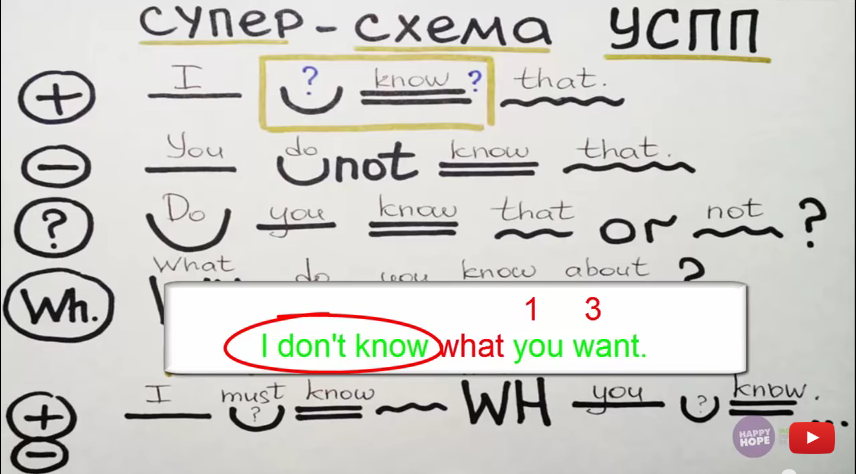 СУПЕР-СХЕМА УСПП
+ I ? know ? that.
− You do not know that.
? Do you know that or not ?
Wh. What do you know about ?
1 3
I don't know what you want.
+ I must ? know WH you ? know. ...
−
HAPPY HOPE